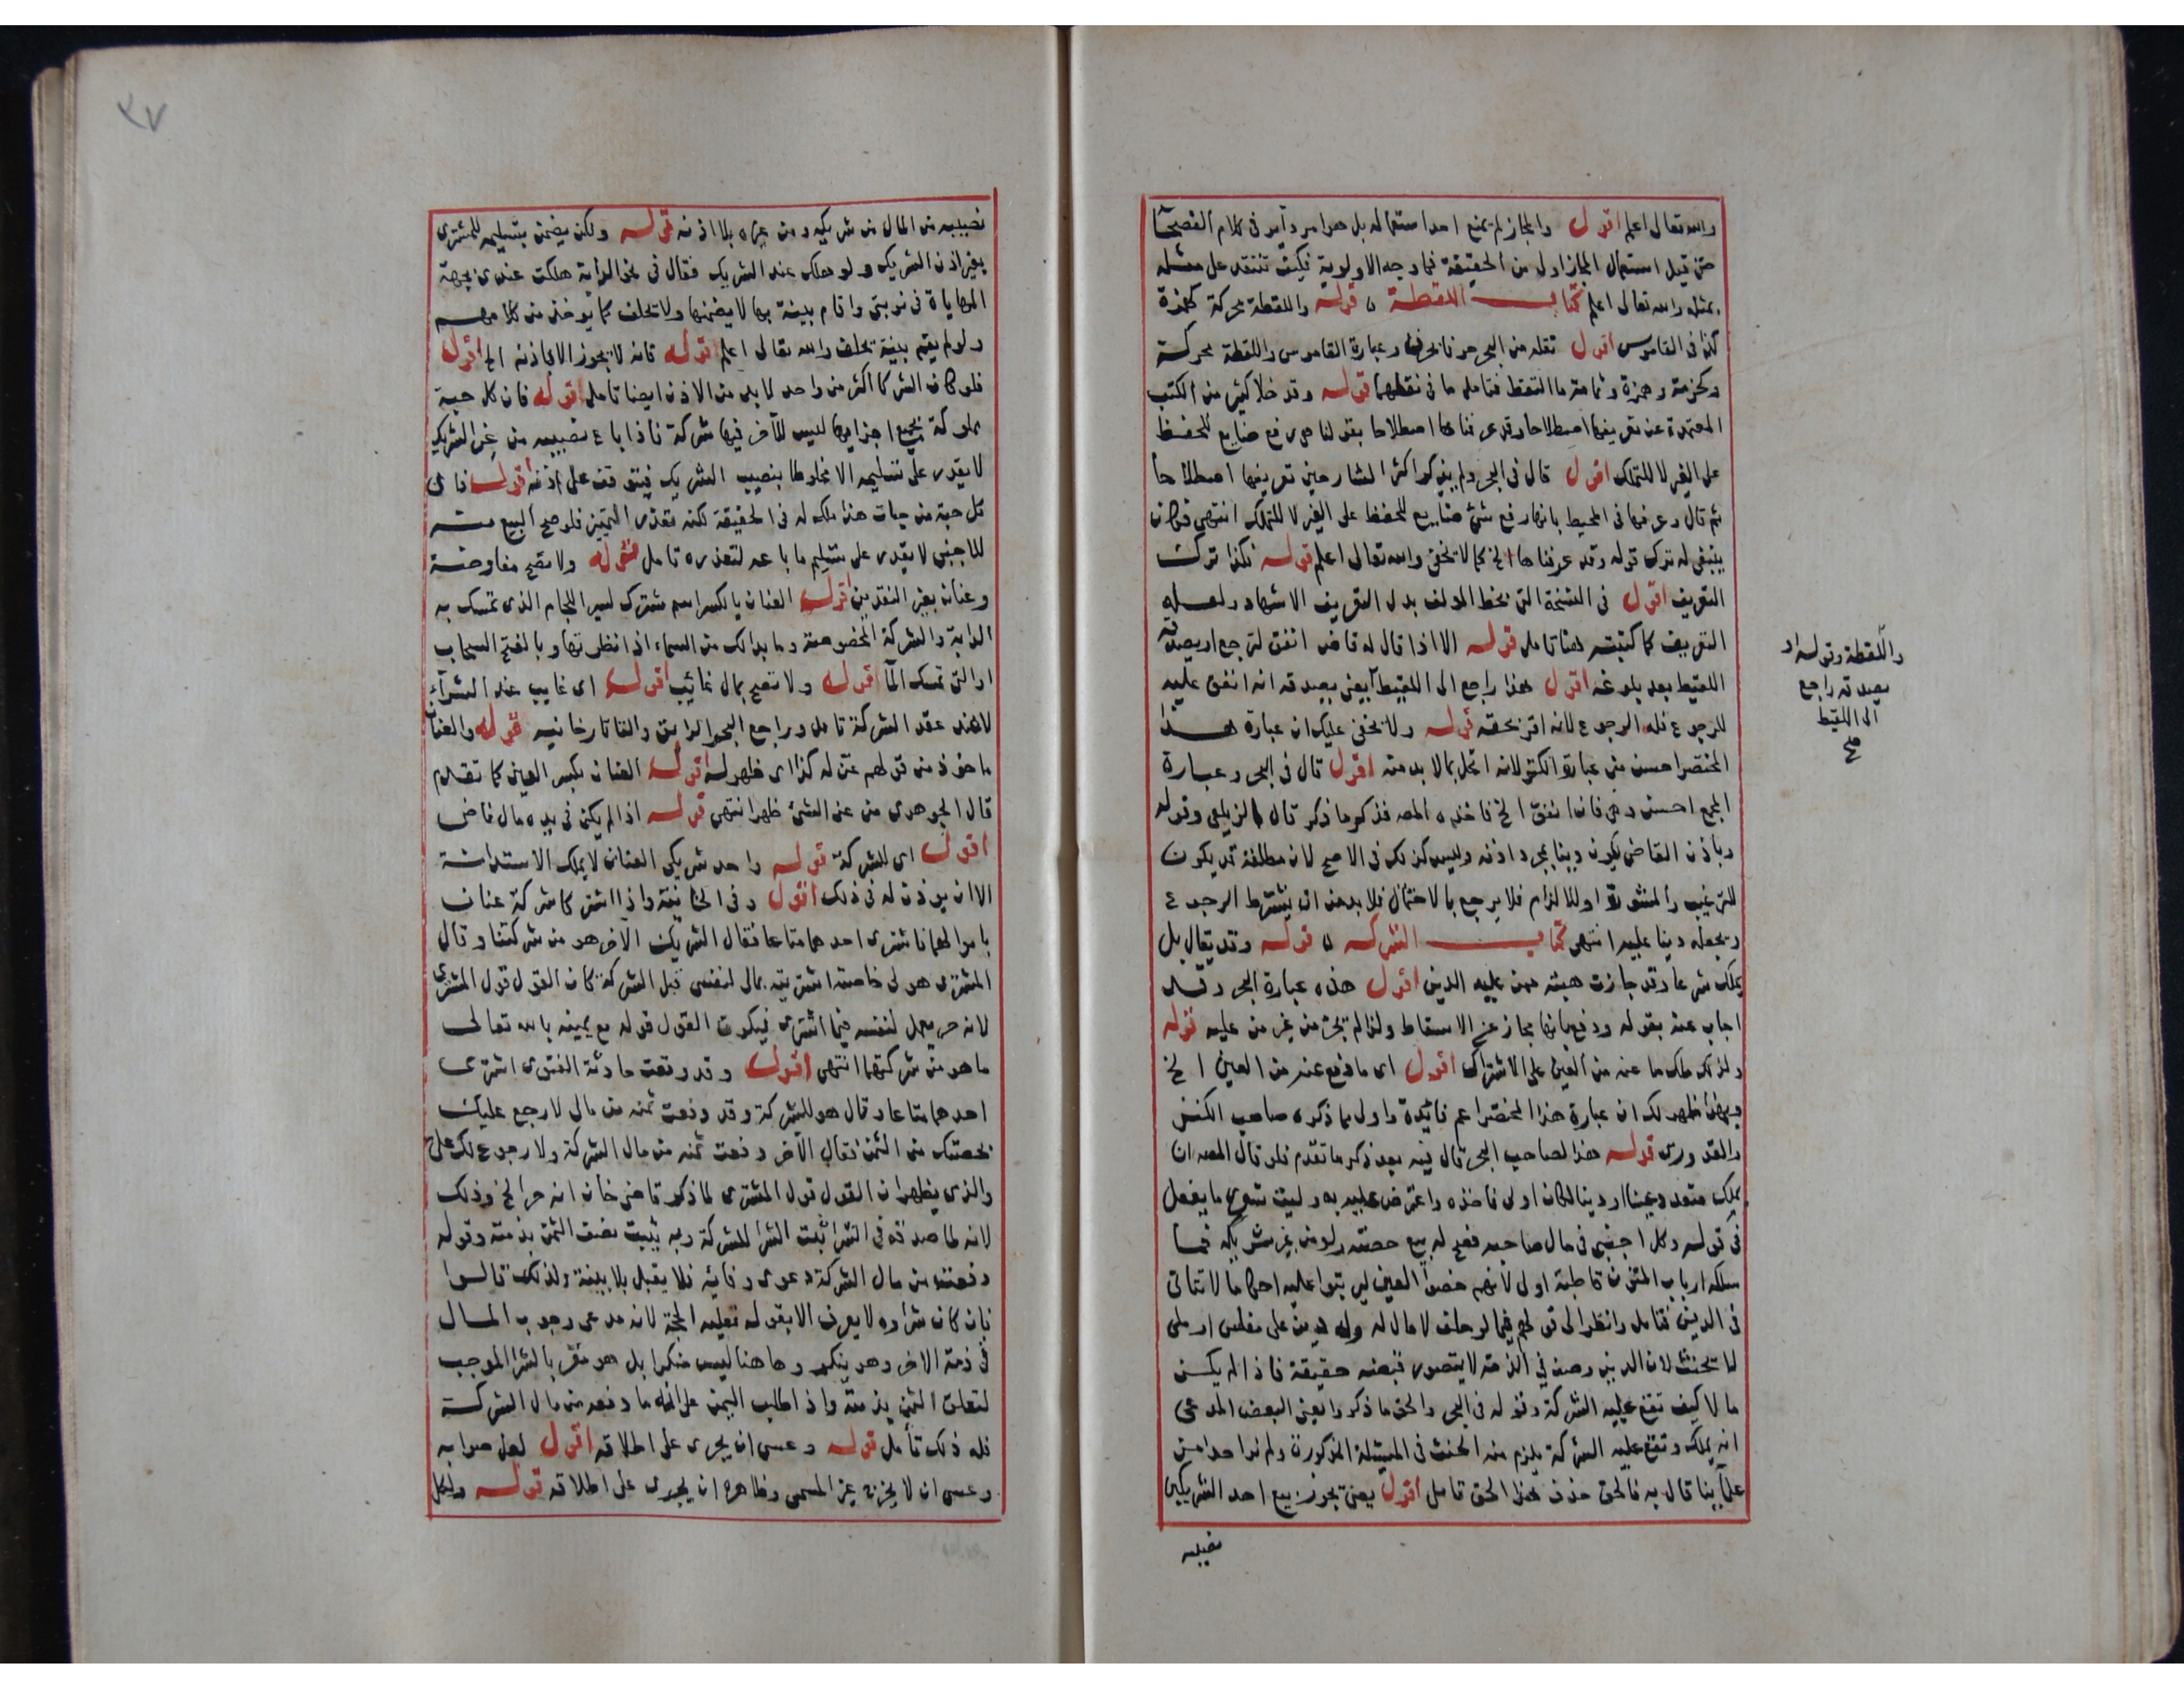 والله تعالى اعلم اقول والمجاز لم يمنع احد استعماله بل هو امر دآير في كلام الفصحآ
حتى قيل استعمال المجاز اولى من الحقيقة فما وجه الاولوية فكيف تنتقد على مثله
بمثله والله تعالى اعلم كتاب اللقطة ۵ قوله واللقطة محركة كهمزة
كذا في القاموس اقول نقله من البحر هو فانحرف وعبارة القاموس واللقطة محركة
وكحزمة وهمزة وثمامة ما التقط فتامل ما في نقلهما قوله وقد خلا كثير من الكتب
المعتمدة عن تعريفها اصطلاحا وقد عرفناها اصطلاحا بقولنا هي رفع ضايع للحفظ
على الغير لا للتملك اقول قال في البحر ولم يذكر اكثر الشارحين تعريفها اصطلاحا
ثم قال وعرفها في المحيط بانها رفع شئ ضايع للحفظ على الغير لا للتملك انتهى فكان
ينبغي له ترك قوله وقد عرفناها الخ كما لا يخفى والله تعالى اعلم قوله فكذا ترك
التعريف اقول في النسخة التي بخط المولف بدل التعريف الاشهاد ولعله
التعريف كما كتبته هنا تامل قوله الا اذا قال له قاض انفق لترجع او يصدقه
اللقيط بعد بلوغه اقول هذا راجع الى اللقيط يعني يصدقه انه انفق عليه
للرجوع فله الرجوع لانه اقر بحقه قوله ولا يخفى عليك ان عبارة هذا
المختصر احسن من عبارة الكنز لانه اخل بما لا بد منه اقول قال في البحر وعبارة
المجمع احسن وهي فان انفق الخ فاخذه المصـ فذكر ما ذكر قال الزيلعي وقوله
وباذن القاضي يكون دينا بمجرد اذنه وليس كذلك في الاصح لان مطلقه قد يكون
للترغيب والمشورة او للالزام فلا يرجع بالاحتمال فلا بد من ان يشترط الرجوع
ويجعله دينا عليه انتهى كتاب الشركه ۵ قوله وقد يقال بل
يملك شرعا وقد جازت هبته ممن عليه الدين اقول هذه عبارة البحر وقد
اجاب عنه بقوله ودفع بانها مجاز عن الاسقاط ولذا لم تجز من غير من عليه قوله
ولذلك ملك ما عنه من العين على الاشتراك اقول اى ما دفع عنه من العين الخ
وبهذا ظهر لك ان عبارة هذا المختصر اعم فائدة واولى مما ذكره صاحب الكنز
والقدورى قوله هذا لصاحب البحر قال فيه بعد ذكر ما تقدم فلو قال المصـ ان
يملك متعدد عينا او دينا لكان اولى فاخذه واعترض عليه به وليت شعري ما يفعل
في قوله وكل اجنبي في مال صاحبه فصح له بيع حصته ولو من غير شريكه فما
سلكه ارباب المتون قاطبة اولى لانهم خصوا العين ليرتبوا عليه احكاما لا تتاتى
في الدين فتامل وانظر الى قولهم فيما لو حلف لا مال له وله دين على مفلس او ملى
لا يحنث لان الدين وصف في الذمة لا يتصور قبضه حقيقة فاذا لم يكن
مالا كيف تقع عليه الشركة وقوله في البحر والحق ما ذكروا يعنى البعض المدعى
انه يملك وتقع عليه الشركة يلزم منه الحنث في المسئلة المذكورة ولم نر احدا من
علمآينا قال به فالحق خذف هذا الحق تامل اقول يعني يجوز بيع احد الشريكين
نصيبه
واللقطة وقوله او
يصدقه راجع
الى اللقيط
صح
٣٧
نصيبه من المال من شريكه ومن غيره بلا اذنه قوله ولكن يضمن بتسليمه للمشترى
بغير اذن الشريك ولو هلك عند الشريك فقال في نحو الدابة هلكت عندى بجهة
المهاياة في نوبتى واقام بينة بها لا يضمنها ولا تحلف كما يوخذ من كلامهم
ولو لم يقم بينة يحلف والله تعالى اعلم قوله فانه لا يجوز الا باذنه الخ اقول
فلو كان الشركا اكثر من واحد لا بد من الاذن ايضا تامل قوله فان كل حبة
مملوكة بجميع اجزايها ليس للآخر فيها شركة فاذا باع نصيبه من غير الشريك
لا يقدر على تسليمه الا مخلوطا بنصيب الشريك فيتوقف على اذنه قوله فان
كل حبة من حبات هذا ملك له في الحقيقة لكنه تعذر التمييز فلو صح البيع منه
للاجنبي لا يقدر على تسليم ما باعه لتعذره تامل قوله ولا تصح مفاوضة
وعنان بغير النقدين اقول العنان بالكسر اسم مشترك لسير اللجام الذى تمسك به
الدابة والشركة المخصوصة وما بدا لك من السماء اذا نظرتها وبالفتح السحاب
او التى تمسك المآ قوله ولا تصح بمال غائب اقول اى غايب عند الشرآء
لا عند عقد الشركة تامل وراجع البحر الرايق والتاتارخانيه قوله والعنان
ماخوذ من قولهم عن له كذا اى ظهر له اقول العنان بكسر العين كما تقدم
قال الجوهرى من عن الشئ ظهر انتهى قوله اذا لم يكن في يده مال ناض
اقول اى للشركة قوله واحد شريكى العنان لا يملك الاستدانة
الا ان يوذن له في ذلك اقول وفى الخانية واذا اشتركا شركة عنان
باموالهما فاشترى احدهما متاعا فقال الشريك الآخر هو من شركتنا وقال
المشترى هو لى خاصة اشتريته بمالى لنفسى قبل الشركة كان القول قول المشترى
لانه حر يعمل لنفسه فيما اشترى فيكون القول قوله مع يمينه بالله تعالى
ما هو من شركتهما انتهى اقول وقد وقعت حادثة الفتوى اشترى
احدهما متاعا وقال هو للشركة وقد دفعت ثمنه من مالى لارجع عليك
بحصتك من الثمن فقال الآخر دفعت ثمنه من مال الشركة ولا رجوع لك على
والذى يظهر ان القول قول المشترى لما ذكر قاضى خان انه حر الخ وذلك
لانه لما صدقه في الشرا ثبت الشرا للشركة وبه يثبت نصف الثمن بذمته وقوله
دفعته من مال الشركة دعوى وفائه فلا يقبل بلا بينة ولذلك قالوا
فان كان شراوه لا يعرف الا بقوله فعليه الحجة لانه مدعى وجوب المال
في ذمة الاخر وهو ينكر وهاهنا ليس منكرا بل هو مقر بالشرا الموجب
لتعلق الثمن بذمته واذا طلب اليمين على انه ما دفعه من مال الشركة
فله ذلك تأمل قوله وعسى ان يجرى على اطلاقه اقول لعل صوابه
وعسى ان لا يجزى غير المسمى وظاهره ان يجرى على اطلاقه قوله ولكل